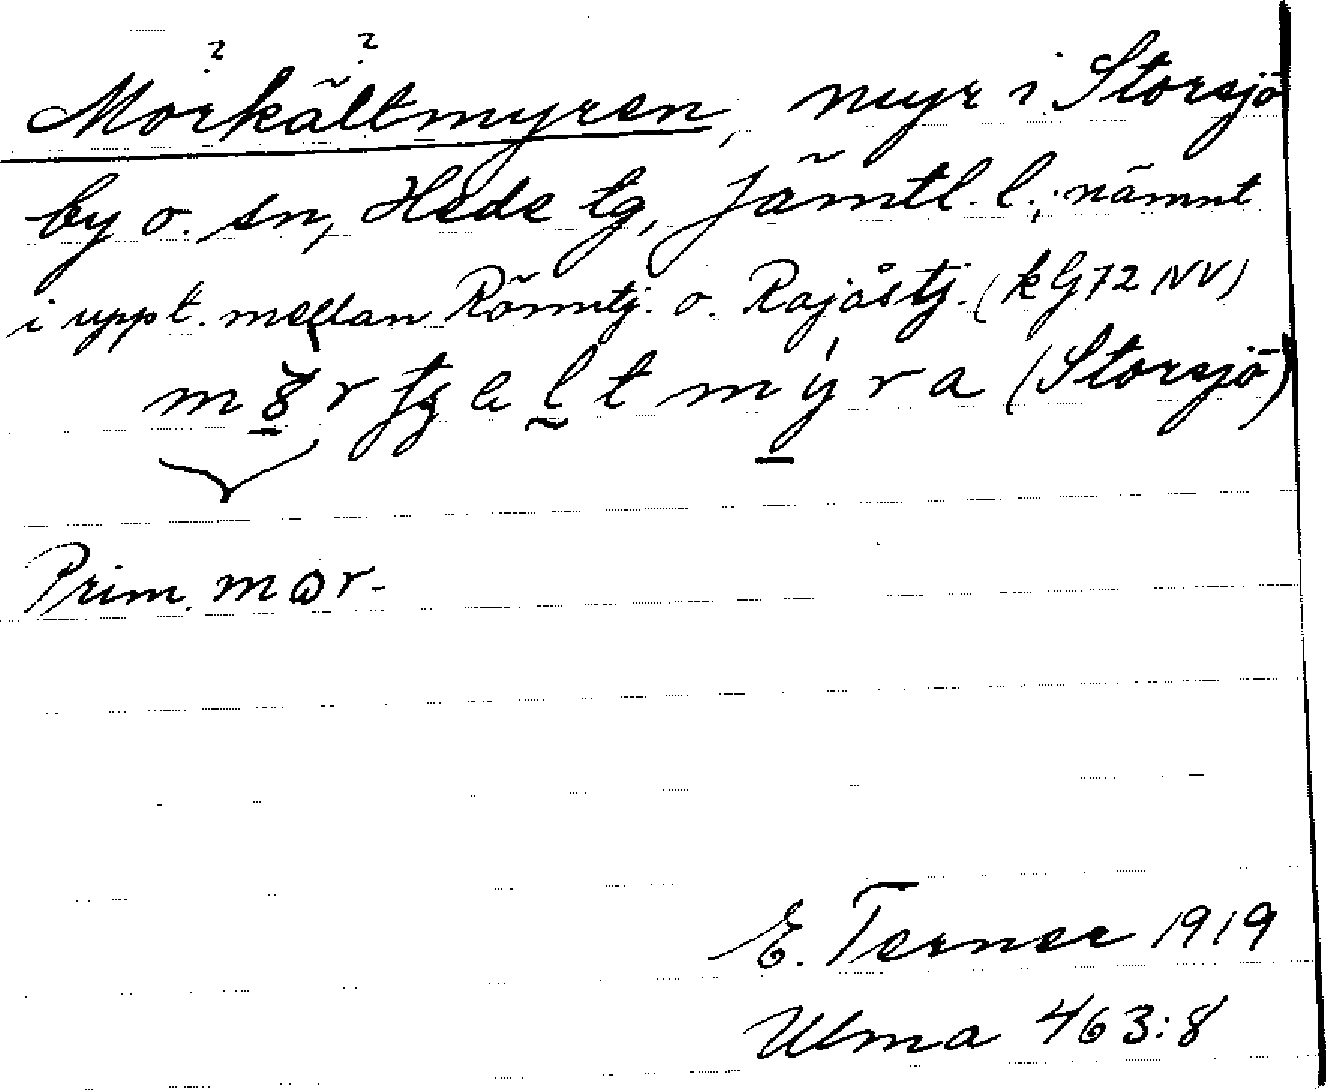 ? ?
Morkältmyren, myr i Storsjö
by o. sn, Hede tg, Jämtl. l.; nämnt
i uppt. mellan Römtj. o. Rajåstj. (kG72NV)
(Storsjö)
Prim. mɷr-
E. Terner 1919
Ulma 463:8